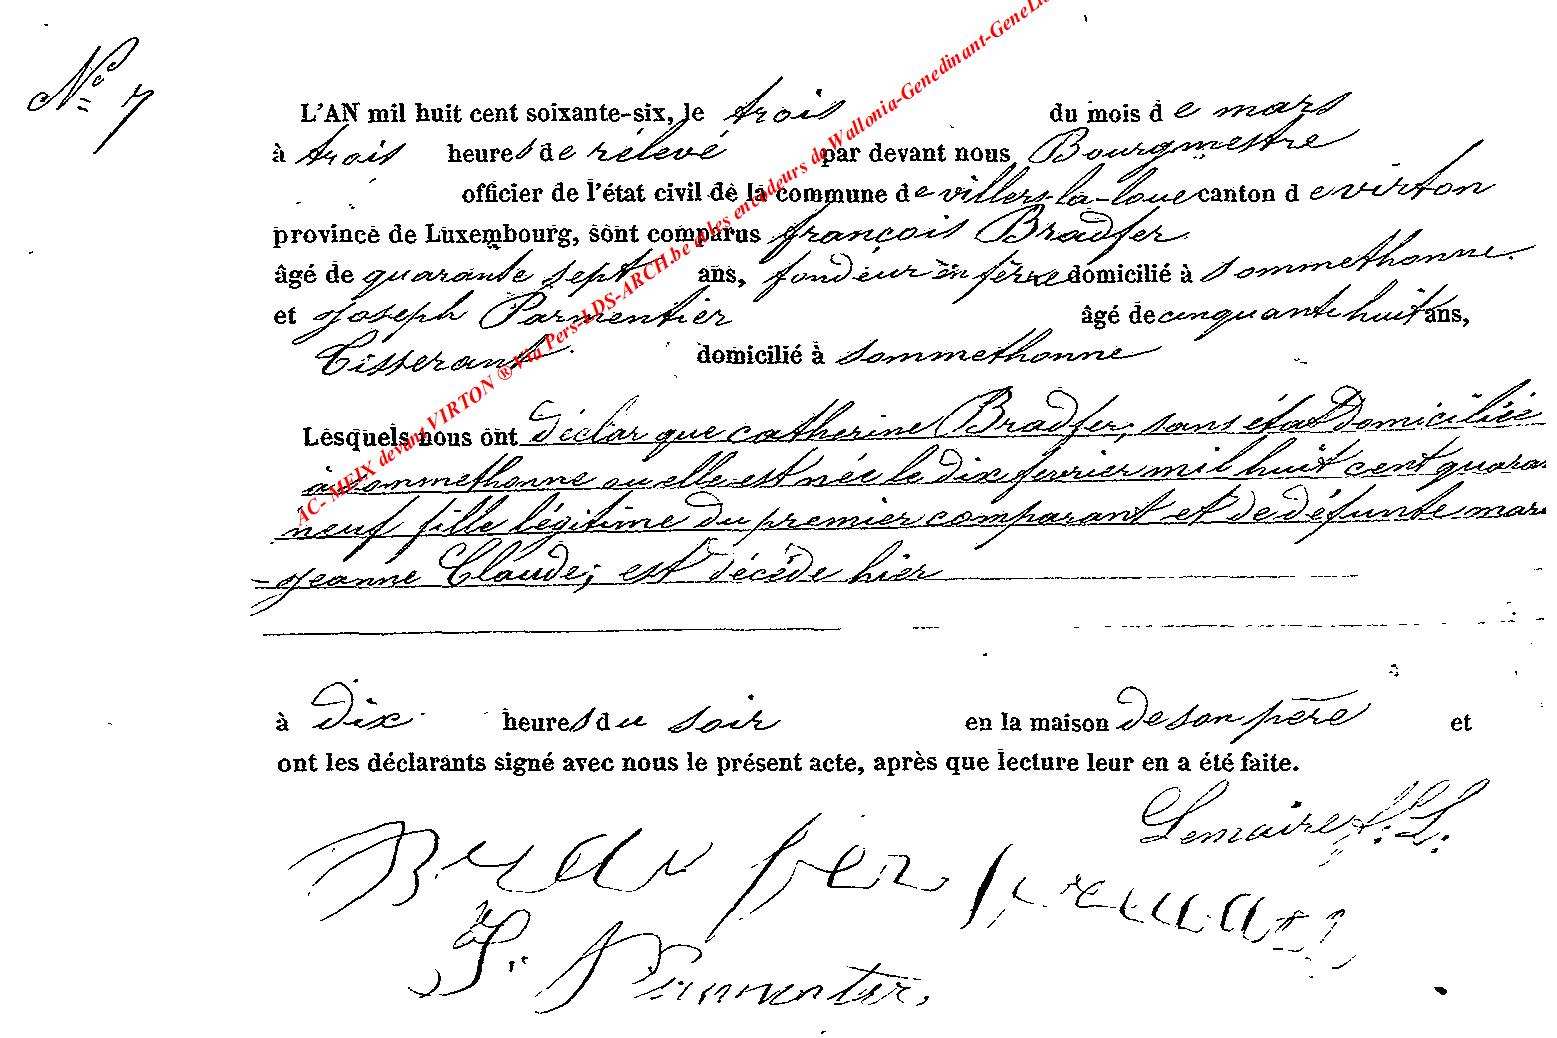 N° 7
L'AN mil huit cent soixante-six, le trois du mois de mars
à trois heures de rélevé par devant nous Bourgmestre
officier de l'état civil de la commune de villers-la-loue canton de virton
province de Luxembourg, sont comparus françois Bradfer
âgé de quarante sept ans, fondeur en ferre domicilié à sommethonne.
et joseph Parmentier âgé de cinquante huit ans,
Tisserant domicilié à sommethonne
Lesquels nous ont déclar que catherine Bradfer, sans état Domiciliée
à sommethonne ou elle est née le dix fevrier mil huit cent quaran
neuf fille légitime du premier comparant et de défunte marie
=jeanne Claude; est décéde hier
à dix heures du soir en la maison de son père et
ont les déclarants signé avec nous le présent acte, après que lecture leur en a été faite.
Lemaire
Bradfer
J. Parmentier
AC- MEIX devant VIRTON ® Via Pers-LDS-ARCH.be et les encodeurs de Wallonia-Genedinant-GeneLie